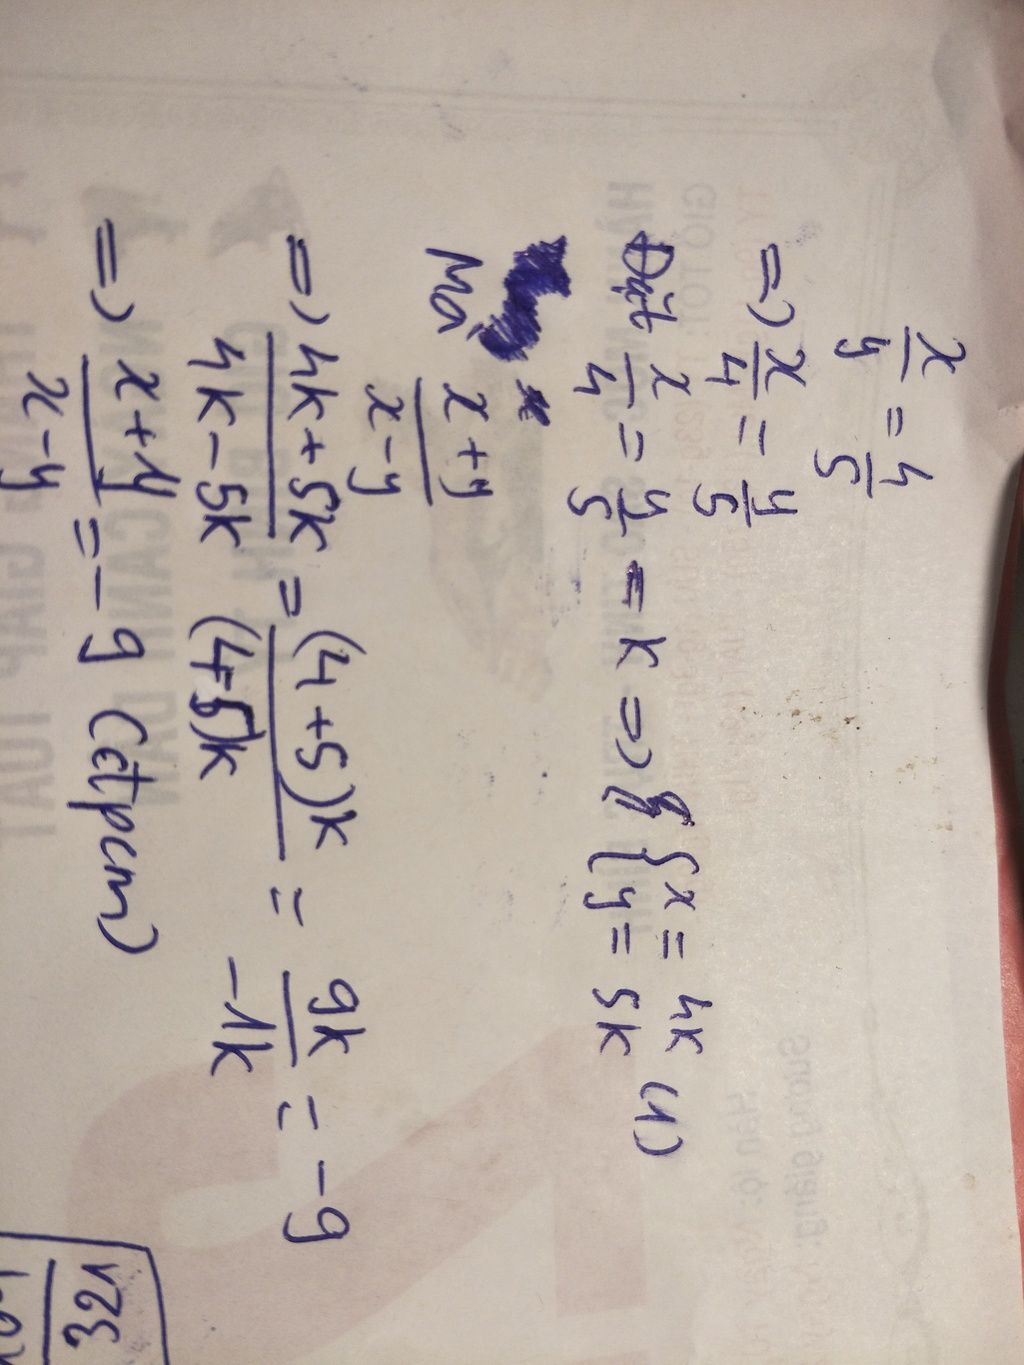 x/y = 4/5
=> x/4 = y/5
Đặt x/4 = y/5 = k => { x = 4k (1)
{ y = 5k
Mà x+y/x-y
=> 4k+5k/4k-5k = (4+5)k/(4-5)k = 9k/-1k = -9
=> x+y/x-y = -9 (đpcm)
321